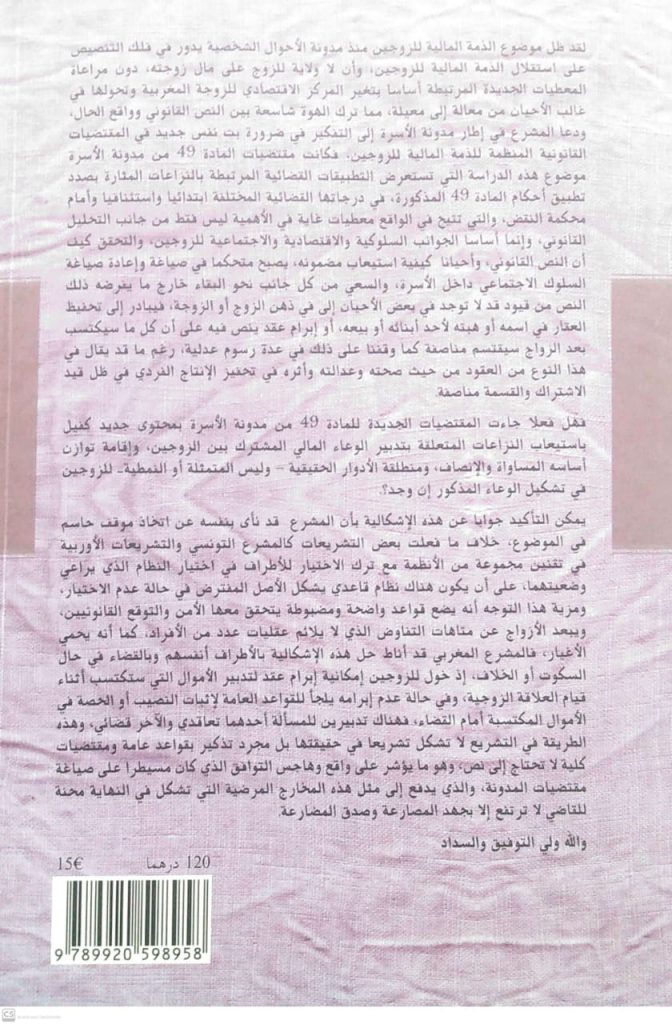 لقد ظل موضوع الذمة المالية للزوجين منذ مدونة الأحوال الشخصية يدور في فلك التنصيص
على استقلال الذمة المالية للزوجين، وأن لا ولاية للزوج على مال زوجته، دون مراعاة
المعطيات الجديدة المرتبطة أساسا بتغير المركز الاقتصادي للزوجة المغربية وتحولها في
غالب الأحيان من معالة إلى معيلة، مما ترك الهوة شاسعة بين النص القانوني وواقع الحال،
ودعا المشرع في إطار مدونة الأسرة إلى التفكير في ضرورة بث نفس جديد في المقتضيات
القانونية المنظمة للذمة المالية للزوجين، فكانت مقتضيات المادة 49 من مدونة الأسرة
موضوع هذه الدراسة التي تستعرض التطبيقات القضائية المرتبطة بالنزاعات المثارة بصدد
تطبيق أحكام المادة 49 المذكورة، في درجاتها القضائية المختلفة ابتدائيا واستئنافيا وأمام
محكمة النقض، والتي تتيح في الواقع معطيات غاية في الأهمية ليس فقط من جانب التحليل
القانوني، وإنما أساسا الجوانب السلوكية والاقتصادية والاجتماعية للزوجين، والتحقق كيف
أن النص القانوني، وأحيانا كيفية استيعاب مضمونه، يصبح متحكما في صياغة وإعادة صياغة
السلوك الاجتماعي داخل الأسرة، والسعي من كل جانب نحو البقاء خارج ما يفرضه ذلك
النص من قيود قد لا توجد في بعض الأحيان إلى في ذهن الزوج أو الزوجة، فيبادر إلى تحفيظ
العقار في اسمه أو هبته لأحد أبنائه أو بيعه، أو إبرام عقد ينص فيه على أن كل ما سيكتسب
بعد الزواج سيقتسم مناصفة كما وقفنا على ذلك في عدة رسوم عدلية، رغم ما قد يقال في
هذا النوع من العقود من حيث صحته وعدالته وأثره في تحفيز الإنتاج الفردي في ظل قيد
الاشتراك والقسمة مناصفة.
فهل فعلا جاءت المقتضيات الجديدة للمادة 49 من مدونة الأسرة بمحتوى جديد كفيل
باستيعاب النزاعات المتعلقة بتدبير الوعاء المالي المشترك بين الزوجين، وإقامة توازن
أساسه المساواة والإنصاف، ومنطلقة الأدوار الحقيقية – وليس المتمثلة أو النمطية– للزوجين
في تشكيل الوعاء المذكور إن وجد؟
يمكن التأكيد جوابا عن هذه الإشكالية بأن المشرع قد نأى بنفسه عن اتخاذ موقف حاسم
في الموضوع، خلاف ما فعلت بعض التشريعات كالمشرع التونسي والتشريعات الأوربية
في تقنين مجموعة من الأنظمة مع ترك الاختيار للأطراف في اختيار النظام الذي يراعي
وضعيتهما، على أن يكون هناك نظام قاعدي يشكل الأصل المفترض في حالة عدم الاختيار،
ومزية هذا التوجه أنه يضع قواعد واضحة ومضبوطة يتحقق معها الأمن والتوقع القانونيين،
ويبعد الأزواج عن متاهات التفاوض الذي لا يلائم عقليات عدد من الأفراد، كما أنه يحمي
الأغيار، فالمشرع المغربي قد أناط حل هذه الإشكالية بالأطراف أنفسهم وبالقضاء في حال
السكوت أو الخلاف، إذ خول للزوجين إمكانية إبرام عقد لتدبير الأموال التي ستكتسب أثناء
قيام العلاقة الزوجية، وفي حالة عدم إبرامه يلجأ للقواعد العامة لإثبات النصيب أو الحصة في
الأموال المكتسبة أمام القضاء، فهناك تدبيرين للمسألة أحدهما تعاقدي والآخر قضائي، وهذه
الطريقة في التشريع لا تشكل تشريعا في حقيقتها بل مجرد تذكير بقواعد عامة ومقتضيات
كلية لا تحتاج إلى نص، وهو ما يؤشر على واقع وهاجس التوافق الذي كان مسيطرا على صياغة
مقتضيات المدونة، والذي يدفع إلى مثل هذه المخارج المرضية التي تشكل في النهاية محنة
للقاضي لا ترتفع إلا بجهد المصارعة وصدق المضارعة.
والله ولي التوفيق والسداد
120 درهما 15€
9 789920 598958
CS